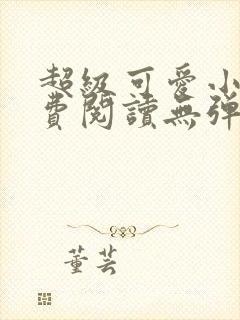 超級可愛小
費閱讀無彈
董芸